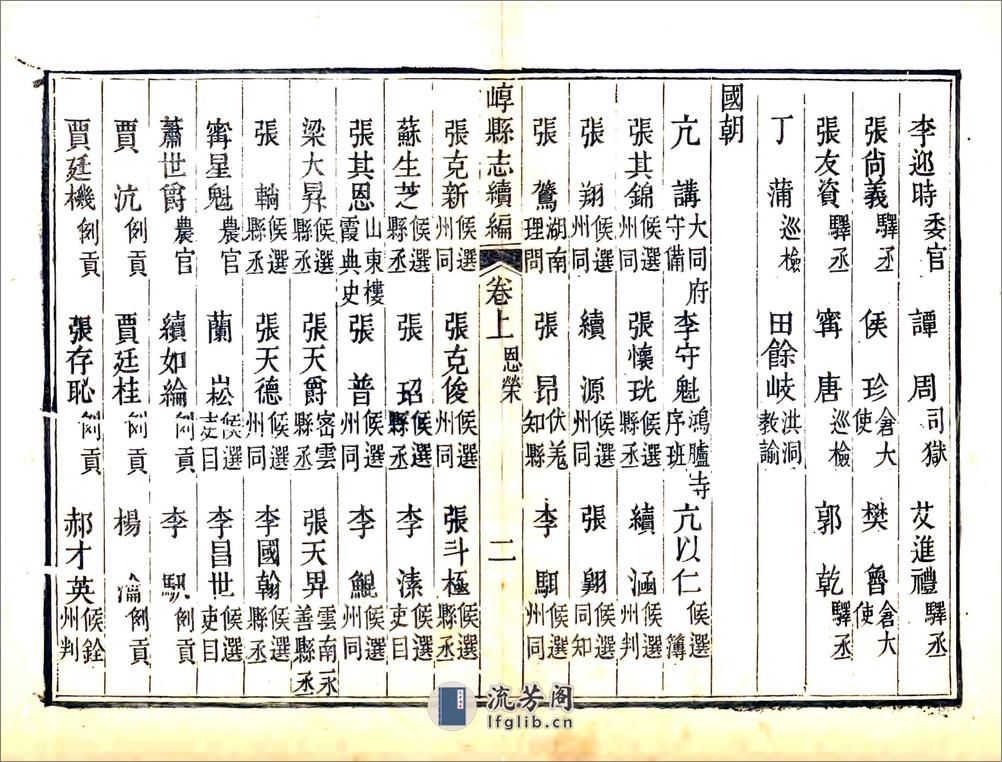 李迎時委官　譚周司獄　艾進禮驛丞
張尙義驛丞　侯珍倉大使　樊魯倉大使
張友資驛丞　甯唐巡檢　郭乾驛丞
丁蒲巡檢　田餘岐洪洞教諭
國朝
亢講大同府守備　李守魁鴻臚寺序班　亢以仁候選簿
張其錦候選州同　張懷珖候選縣丞　續涵候選州判
張翔候選州同　續源候選州同　張翺候選同知
張鶩湖南理問　張昂伏羌知縣　李駬候選州同
崞縣志續編　卷上　恩榮　二
張克新候選州同　張克俊候選州同　張斗極候選縣丞
蘇生芝候選縣丞　張玿候選縣丞　李溱候選吏目
張其恩山東棲霞典史　張普候選州同　李鯤候選州同
梁大昇候選縣丞　張天爵密雲縣丞　張天昇雲南永善縣丞
張輈候選縣丞　張天德候選州同　李國翰候選縣丞
甯星魁農官　蘭崧候選吏目　李昌世候選吏目
蕭世爵農官　續如綸例貢　李馹例貢
賈沆例貢　賈廷桂例貢　楊瀹例貢
賈廷機例貢　張存恥例貢　郝才英候銓州判
流芳阁
lfglib.cn